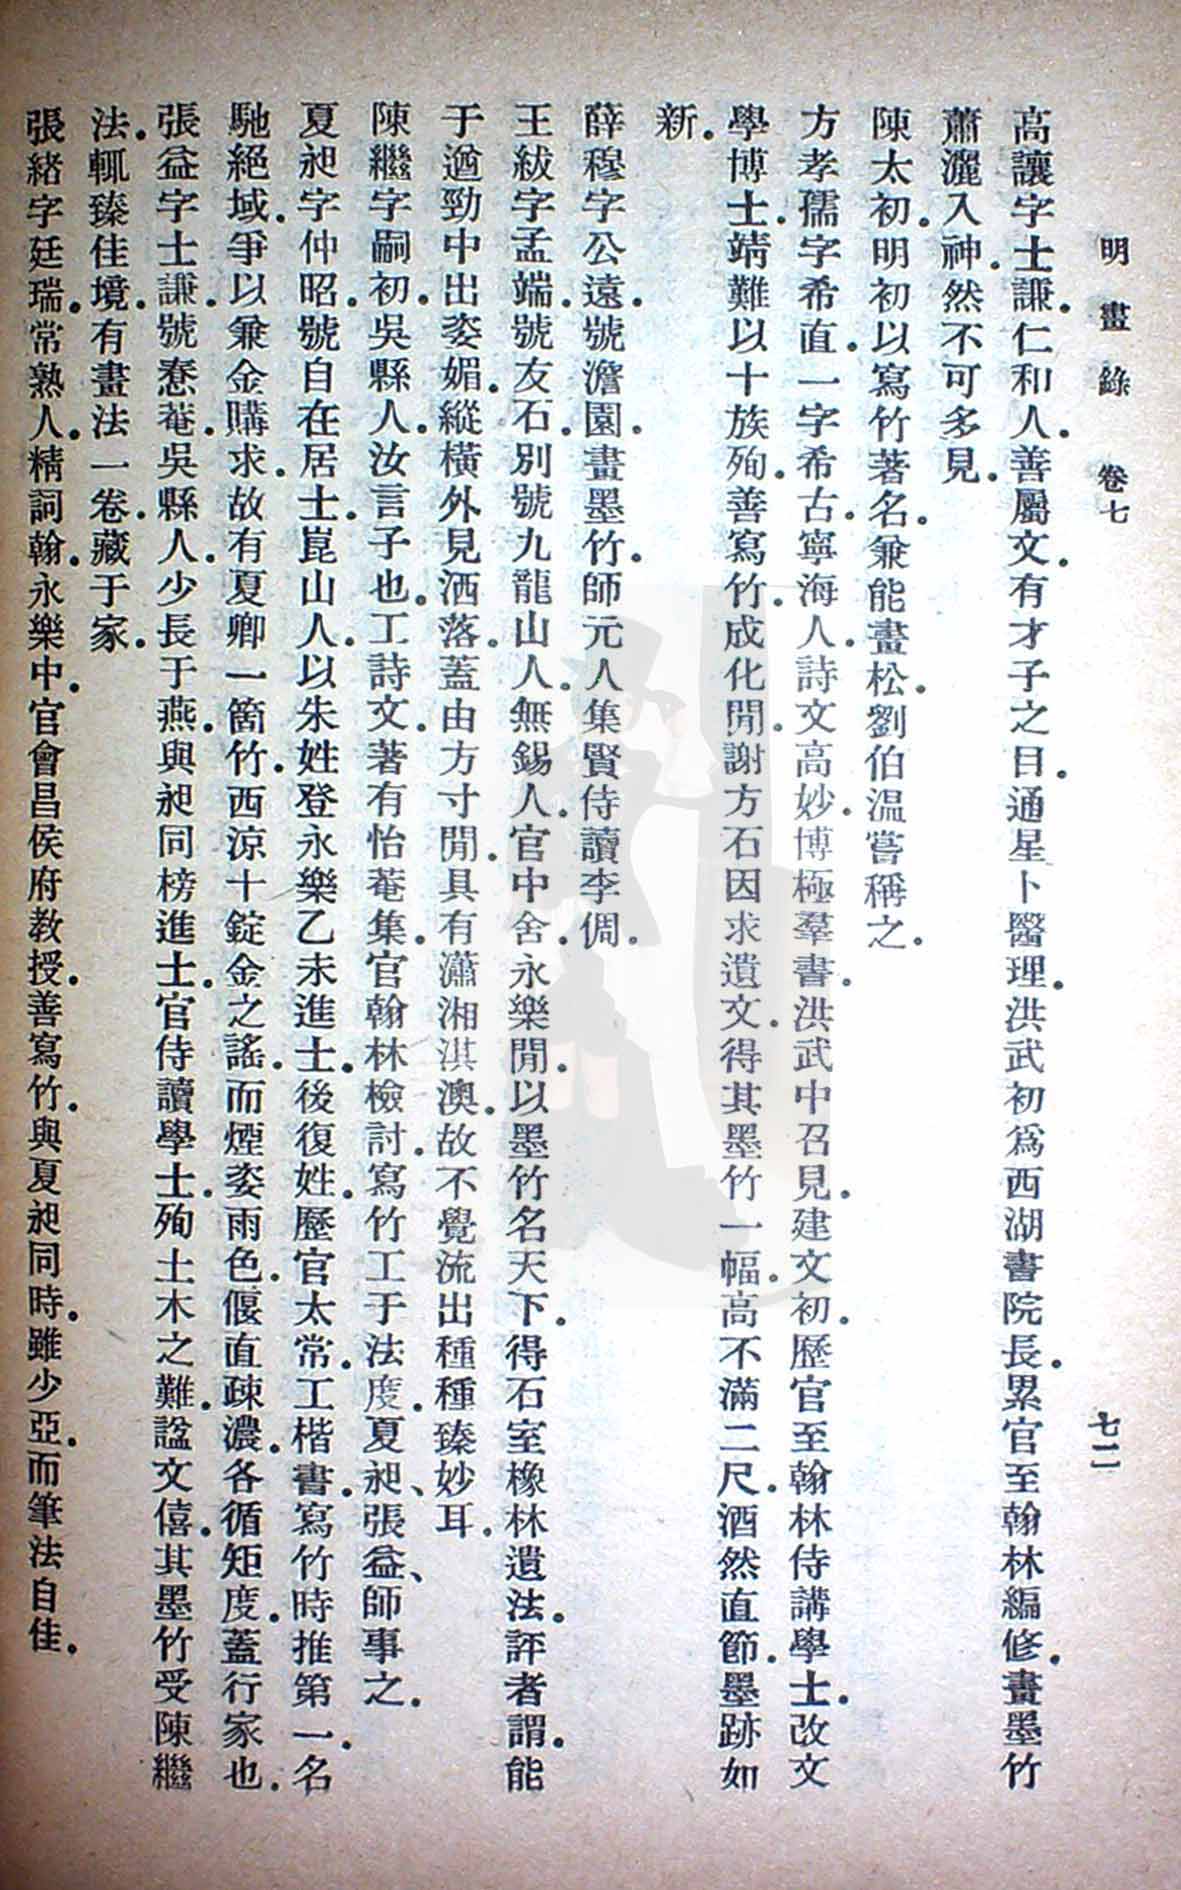 明畫錄 卷七 七二
高讓字士謙。仁和人。善屬文。有才子之目。通星卜醫理。洪武初爲西湖書院長。累官至翰林編修。畫墨竹
蕭灑入神。然不可多見。
陳太初。明初以寫竹著名。兼能畫松。劉伯溫嘗稱之。
方孝孺字希直。一字希古。寧海人。詩文高妙。博極羣書。洪武中召見。建文初。歷官至翰林侍講學士。改文
學博士。靖難以十族殉。善寫竹。成化閒。謝方石因求遺文。得其墨竹一幅。高不滿二尺。洒然直節。墨跡如
新。
薛穆字公遠。號澹園。畫墨竹。師元人集賢侍讀李倜。
王紱字孟端。號友石。別號九龍山人。無錫人。官中舍。永樂閒。以墨竹名天下。得石室橡林遺法。評者謂。能
于遒勁中出姿媚。縱橫外見洒落。蓋由方寸閒。具有瀟湘淇澳。故不覺流出種種臻妙耳。
陳繼字嗣初。吳縣人。汝言子也。工詩文。著有怡菴集。官翰林檢討。寫竹工于法度。夏昶、張益、師事之。
夏昶字仲昭。號自在居士。崑山人。以朱姓登永樂乙未進士。後復姓。歷官太常。工楷書。寫竹時推第一。名
馳絕域。爭以兼金購求。故有夏卿一箇竹。西涼十錠金之謠。而煙姿雨色。偃直疎濃。各循矩度。蓋行家也。
張益字士謙。號惷菴。吳縣人。少長于燕。與昶同榜進士。官侍讀學士。殉土木之難。諡文僖。其墨竹受陳繼
法。輒臻佳境。有畫法一卷。藏于家。
張緒字廷瑞。常熟人。精詞翰。永樂中。官會昌侯府教授。善寫竹。與夏昶同時。雖少亞。而筆法自佳。